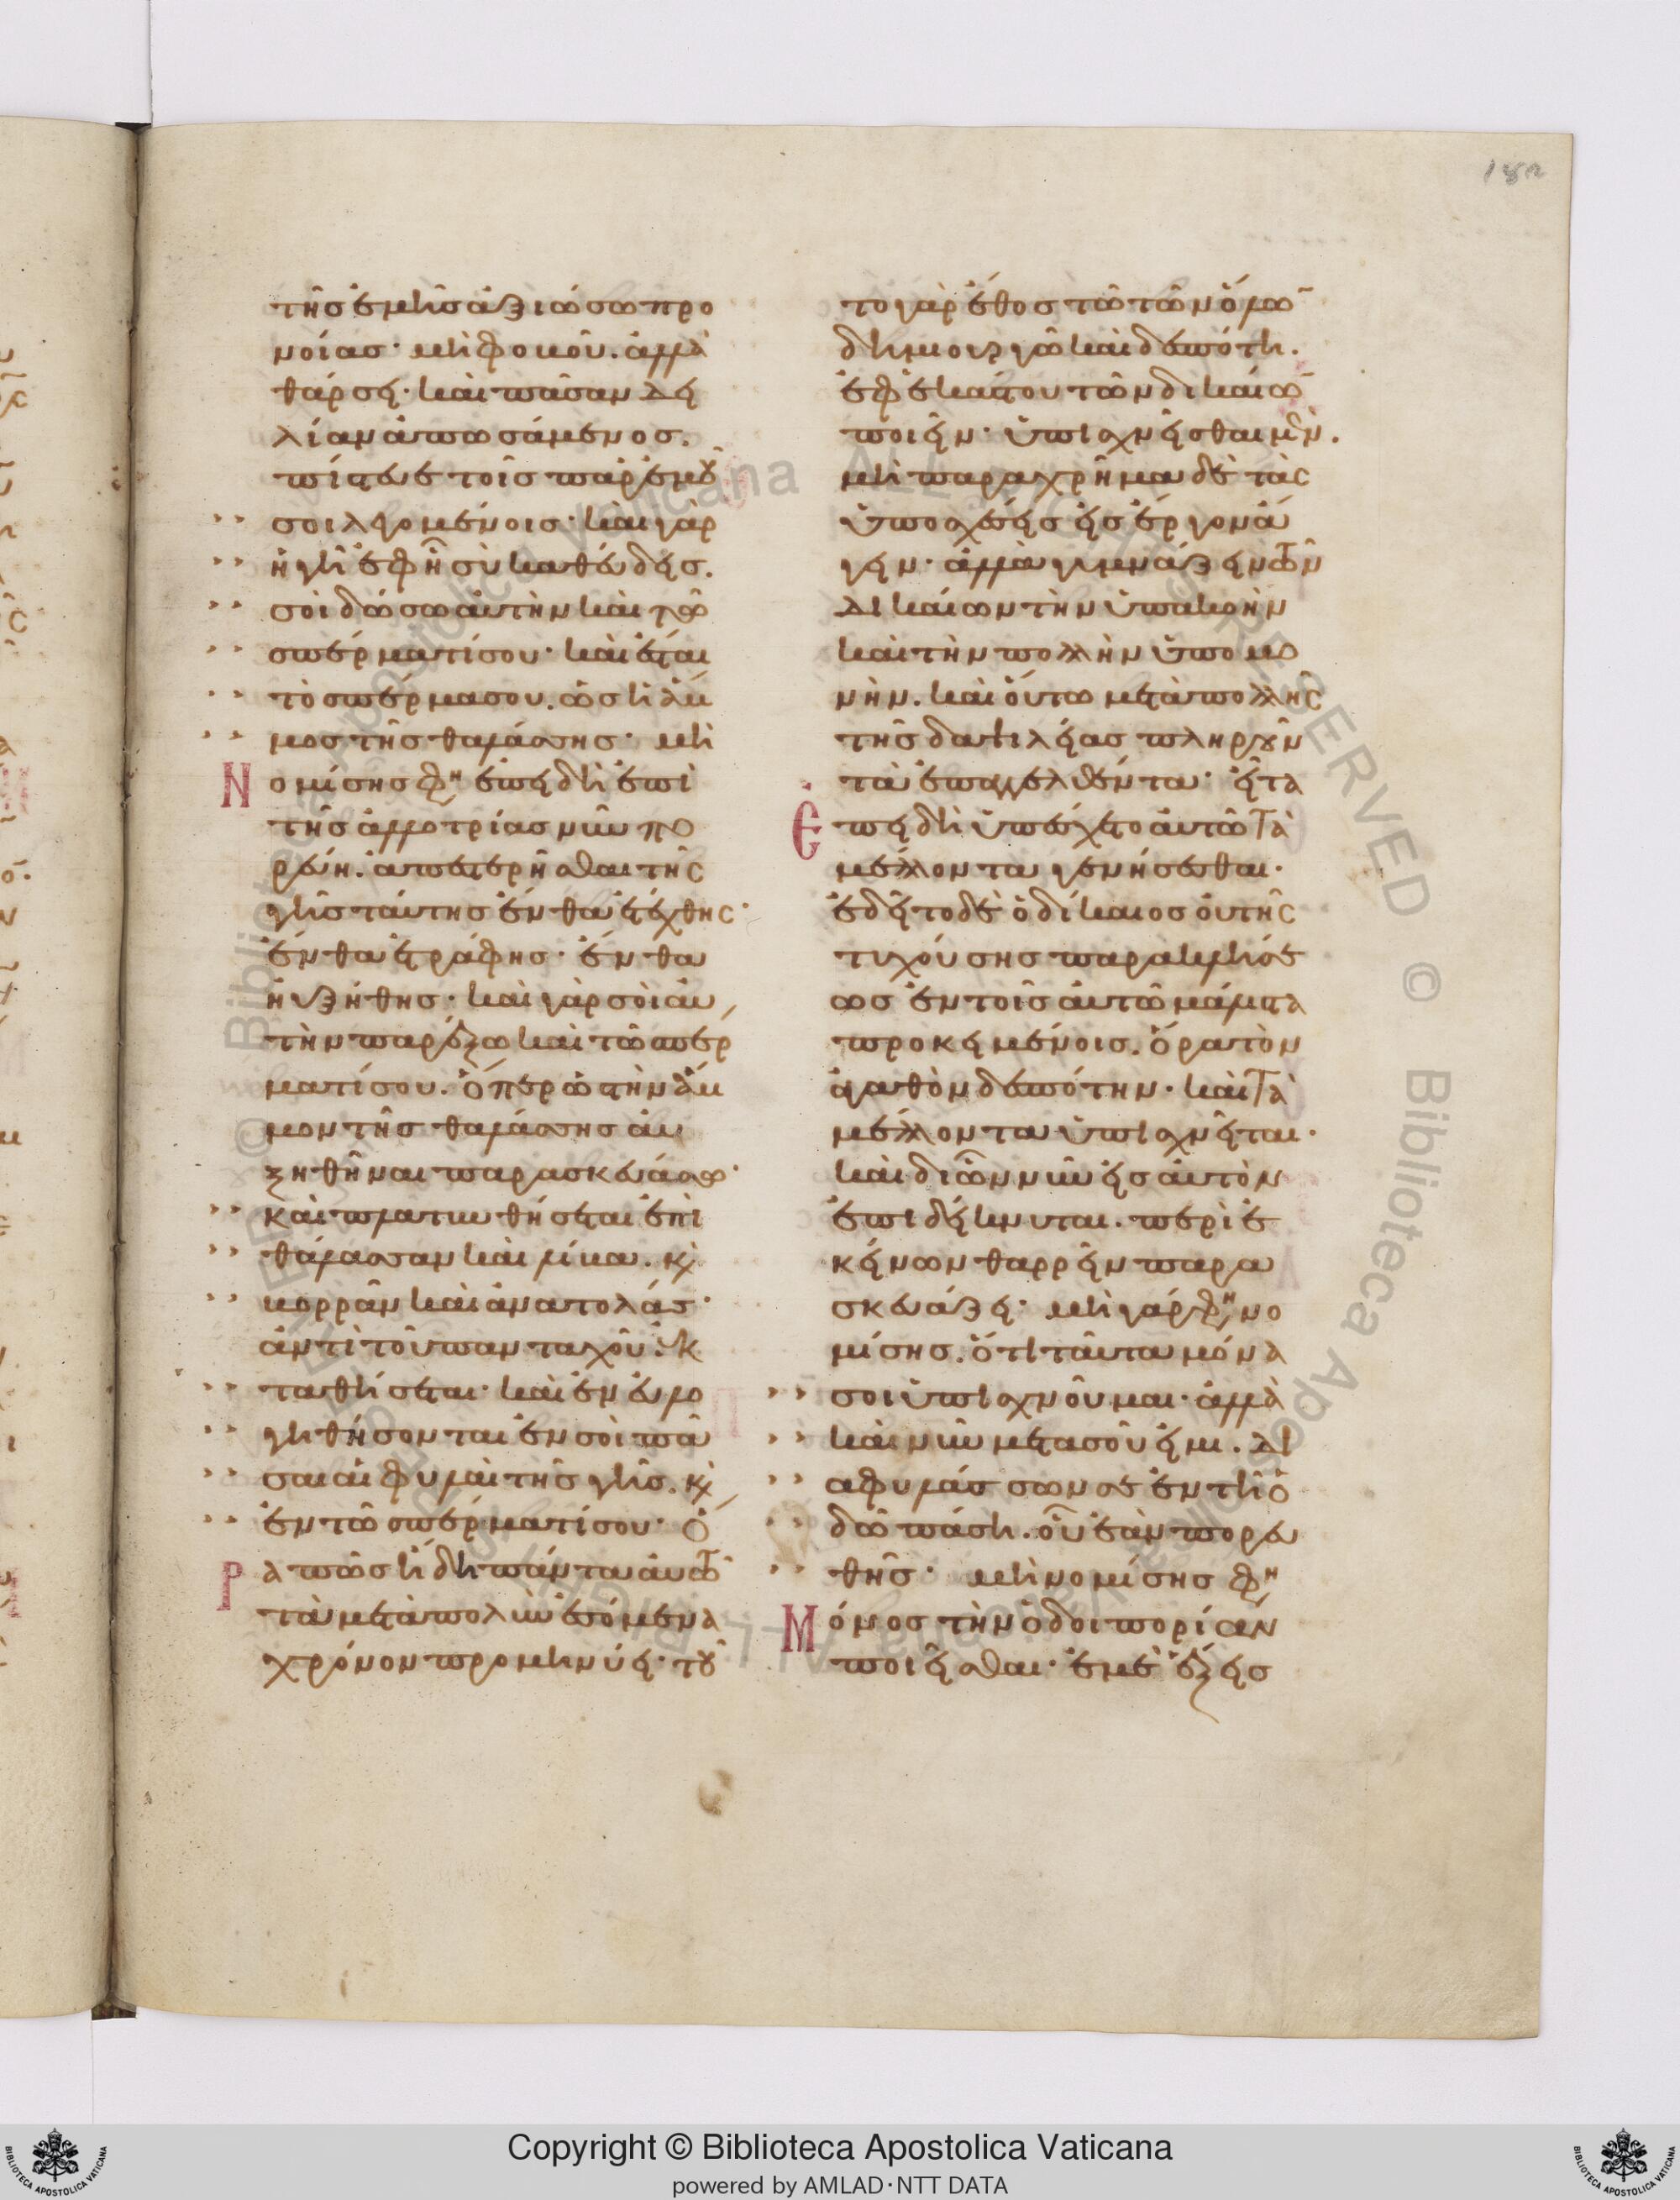 182
τῆς ἐμῆς ἀξιώσω προ
νοίας· μὴ φοβοῦ. ἀλλὰ
θάρσει· καὶ πᾶσαν δει
λίαν ἀπωσάμενος.
πίστευε τοῖς παρ' ἐμοῦ
σοι λεγομένοις· καὶ γὰρ
ἡ γῆ ἐφ' ἧ σὺ καθεύδεις.
σοὶ δώσω αὐτὴν καὶ τῶ
σπέρματί σου· καὶ ἔσται
τὸ σπέρμα σου. ὡσὴ ἄμ
μος τῆς θαλάσσης· μὴ
Νομίσης φη ἐπειδὴ ἐπὶ
τῆς ἀλλοτρίας νῦν πο
ρεύη. ἀπεστερῆσθαι τῆς
γῆς ταύτης ἔνθα ἐτέχθης·
ἔνθα ἐτράφης· ἔνθα
ηὐξήθης· καὶ γὰρ σοὶ αὐ
τὴν παρέξω καὶ τῶ σπέρ
ματί σου. ὅπερ ὡς τὴν ἄμ
μον τῆς θαλάσσης αὐ
ξηθῆναι παρασκευάσω·
καὶ πλατυνθήσεται ἐπὶ
θάλασσαν καὶ λίβα. κὶ
βορρᾶν καὶ ἀνατολάς·
ἀντὶ τοῦ πανταχοῦ. ἐκ
ταθήσεται· καὶ ἐνευλο
γηθήσονται ἐν σοὶ πᾶ
σαι αἱ φυλαὶ τῆς γῆς. κὶ
ἐν τῶ σπέρματί σου· Ὅ
Ρα πῶς ἤδη πάντα αὐτῶ
τὰ μετὰ πολὺν ἐσόμενα
χρόνον προμηνύει· τοῦ
το γὰρ ἔθος τῶ τῶν ὅλων
δημιουργῶ καὶ δεσπότη.
ἐφ' ἑκάστου τῶν δικαίων
ποιεῖν· ὑπισχνεῖσθαι μὲν.
μὴ παραχρῆμα δὲ τὰς
ὑποσχέσεις εἰς ἔργον ἄ
γειν· ἀλλὰ γυμνάζειν τῶν
δικαίων τὴν ὑπακοὴν
καὶ τὴν πολλὴν ὑπομο
νὴν. καὶ οὕτω μετὰ πολλῆς
τῆς δαψιλείας πληροῦν
τὰ ἐπαγγελθέντα· εἶτα
Ἐπειδὴ ὑπέσχετο αὐτῶ τὰ
μέλλοντα γενήσεσθαι·
ἐδεῖτο δὲ ὁ δίκαιος οὐ τῆς
τυχούσης παρακλήσε
ως ἐν τοῖς αὐτῶ μάλιστα
προκειμένοις. ὅρα τὸν
ἀγαθὸν δεσπότην· καὶ τὰ
μέλλοντα ὑπισχνεῖται·
καὶ δι' ὧν νῦν εἰς αὐτὸν
ἐπιδείκνυται. περὶ ἐ
κείνων θαρρεῖν παρα
σκευάζει· μὴ γάρ φη νο
μίσης. ὅτι ταῦτα μόνα
σοι ὑπισχνοῦμαι· ἀλλὰ
καὶ νῦν μετὰ σοῦ εἰμι. δι
αφυλάσσων σε ἐν τῆ ὁ
δῶ πάση. οὗ ἐὰν πορευ
θῆς· μὴ νομίσης φη
Μόνος τὴν ὁδοιπορίαν
ποιεῖσθαι· ἐμὲ ἕξεις
Copyright © Biblioteca Apostolica Vaticana
powered by AMLAD·NTT DATA